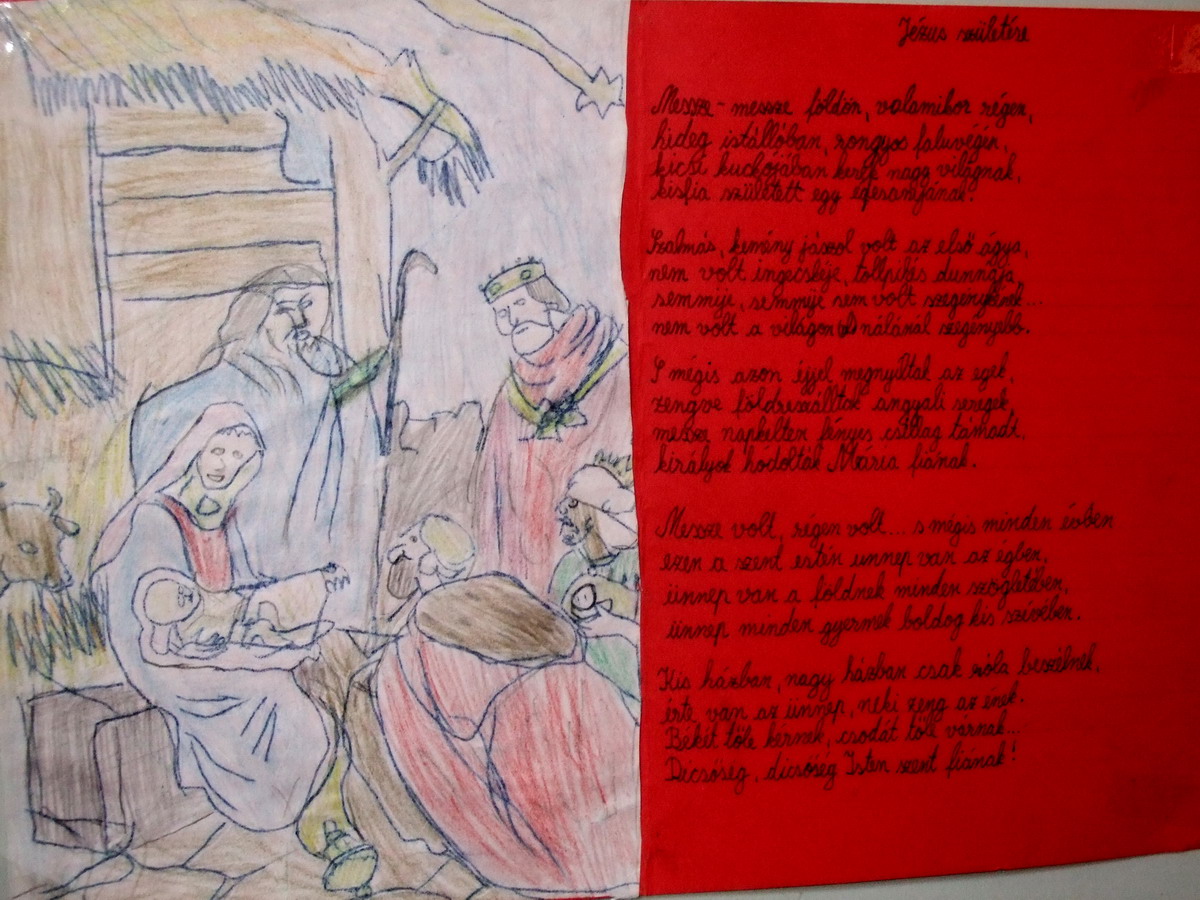 Jézus születése
Messze-messze földön, valamikor régen,
hideg istállóban, rongyos faluvégen,
kicsi kuckójában kerek nagy világnak,
kisfia született egy édesanyának!
Szalmás, kemény jászol volt az első ágya,
nem volt ingecskéje, tollpihés dunnája,
semmije, semmije sem volt szegénykének...
nem volt a világon nálánál szegényebb.
S mégis azon éjjel megnyíltak az egek,
zengve földreszálltak angyali seregek,
messze napkelten fényes csillag támadt,
királyok hódoltak Mária fiának.
Messze volt, régen volt... s mégis minden évben
ezen a szent estén ünnep van az égben,
ünnep van a földnek minden szögletében,
ünnep minden gyermek boldog kis szívében.
Kis házban, nagy házban csak róla beszélnek,
érte van az ünnep, neki zeng az ének.
Békét tőle kérnek, csodát tőle várnak...
Dicsőség, dicsőség Isten szent fiának!